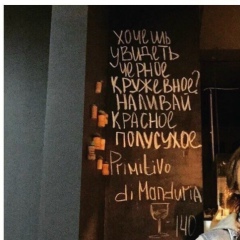 ХОЧЕШЬ
УВИДЕТЬ
ЧЕРНОЕ
КРУЖЕВНОЕ?
НАЛИВАЙ
КРАСНОЕ
ПОЛУСУХОЕ
Primitivo
di Manduria
140